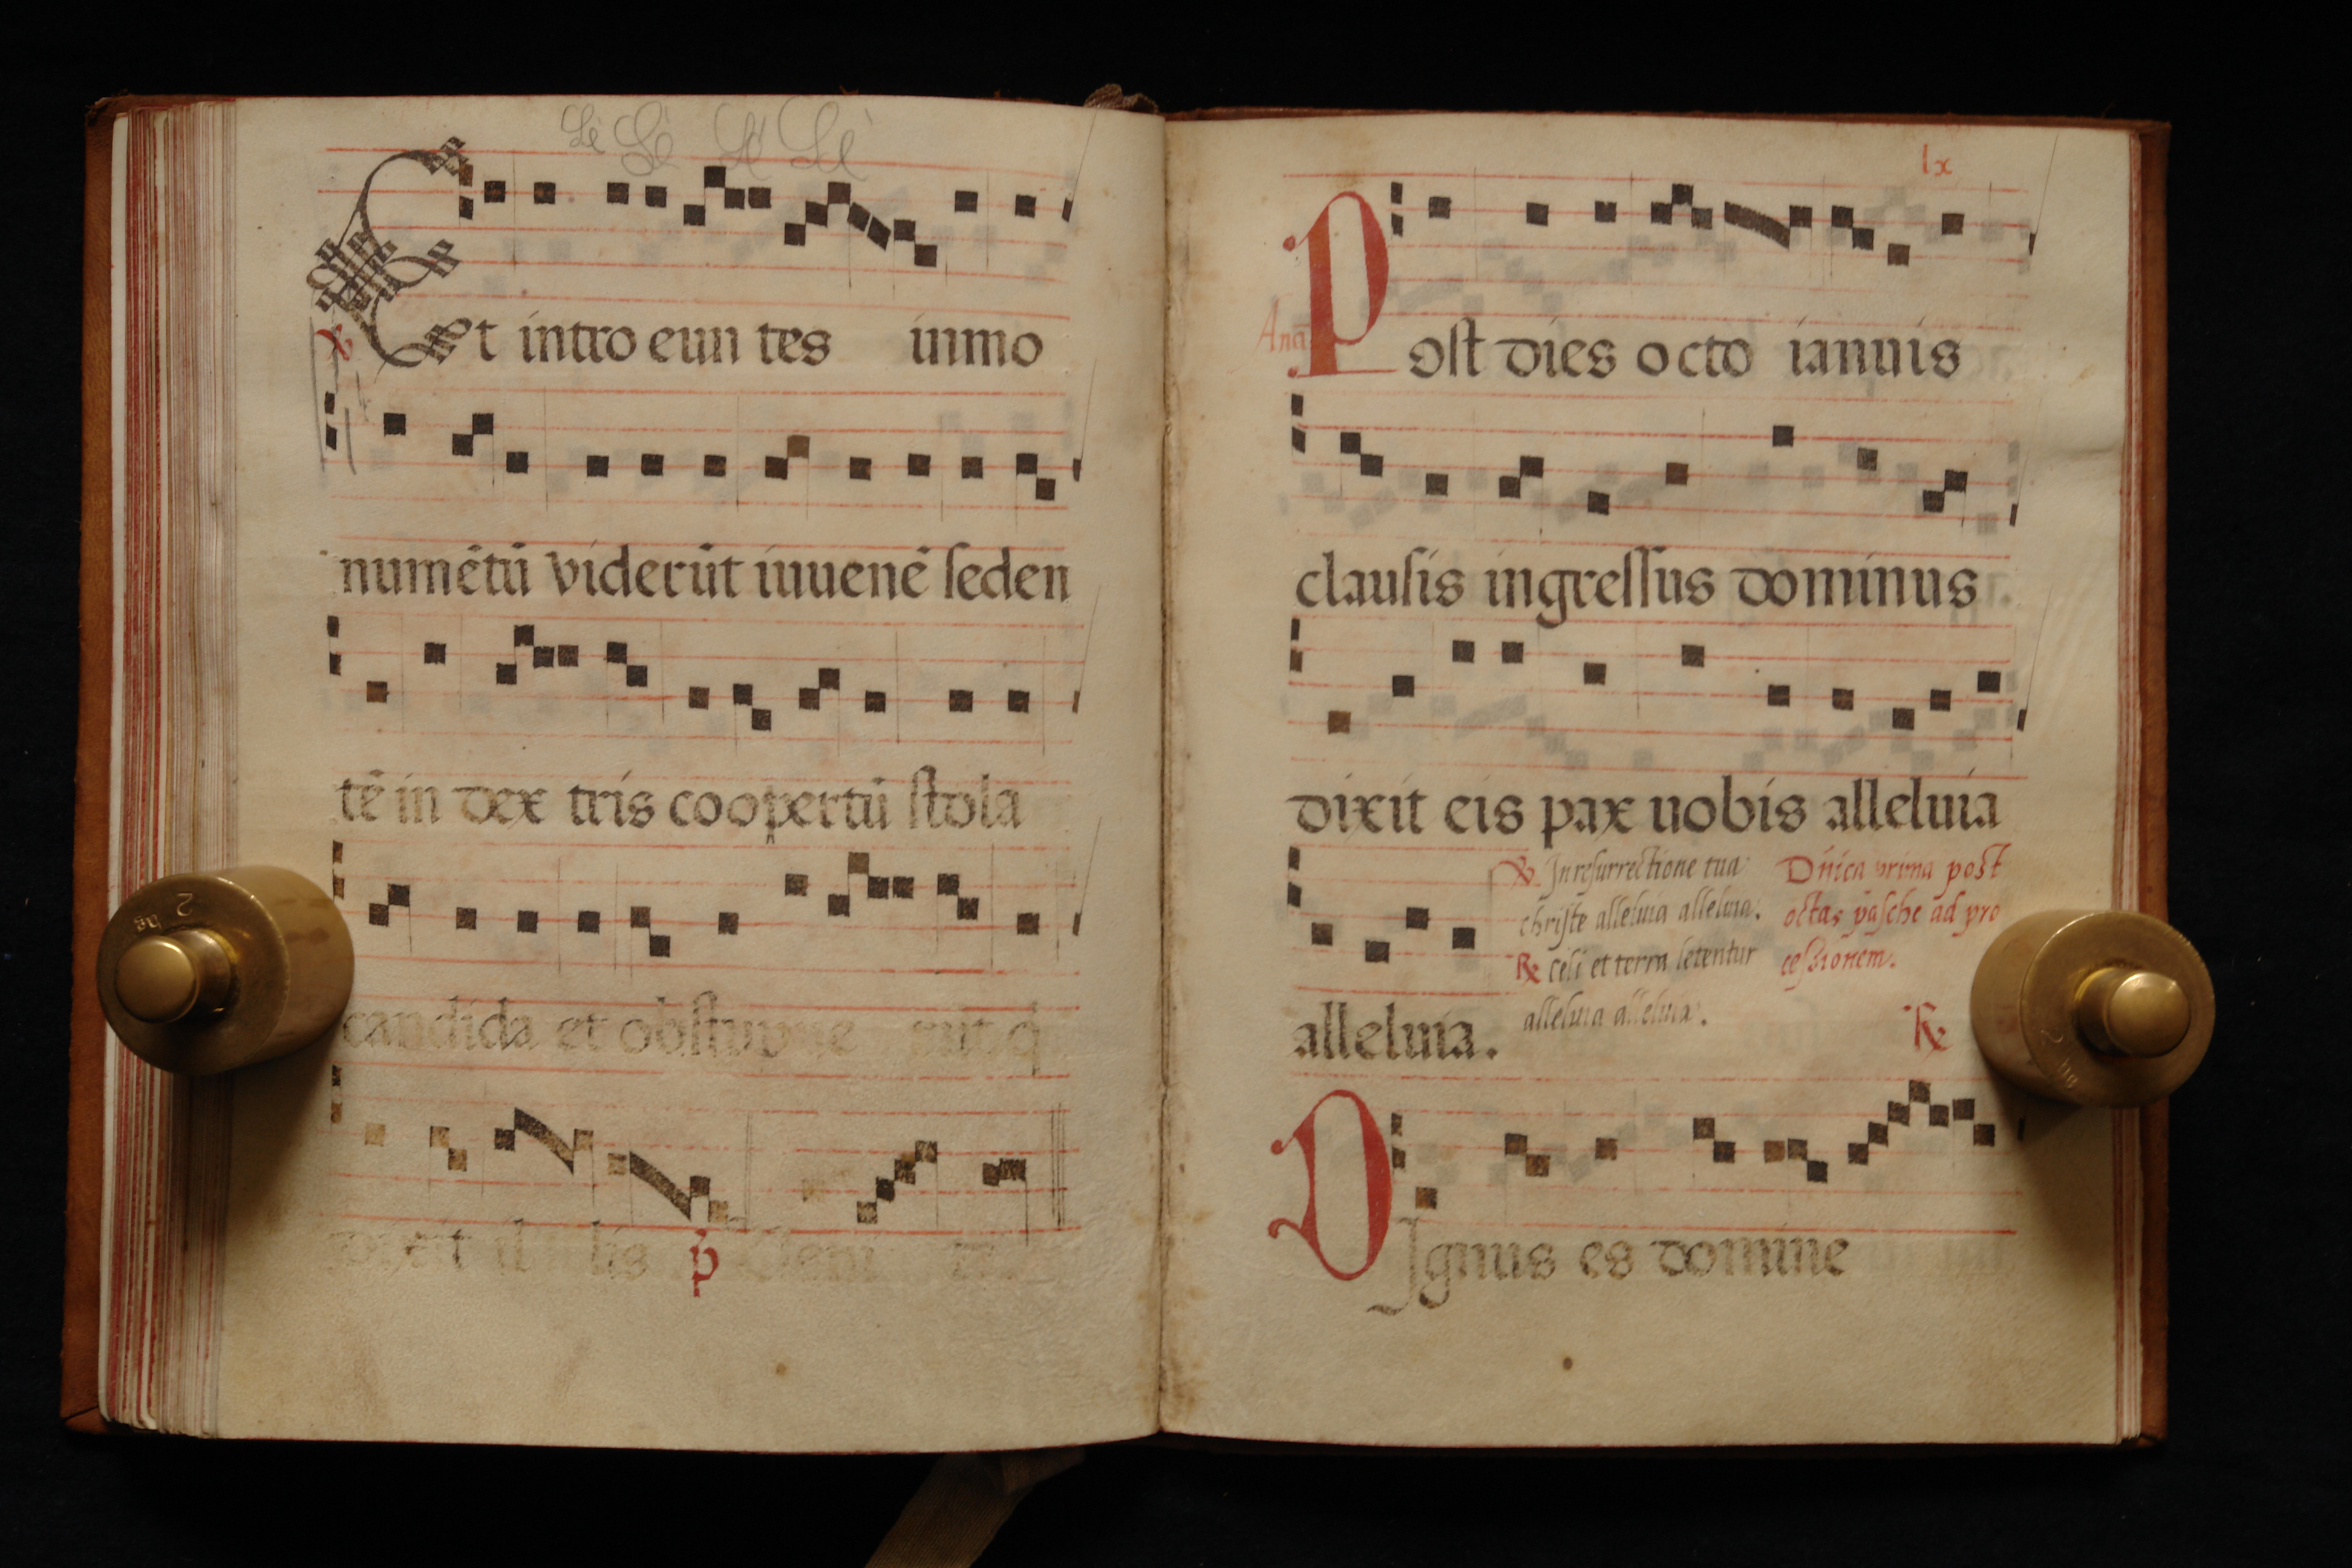 Et intro eun tes inmo
numētū viderūt iuuenē seden
tē in dex tris coopertū stola
candida et obstupue runt q̄
dixit il lis
p
lx
Anā
Post dies octo ianuis
clausis ingressus dominus
dixit eis pax uobis alleluia
alleluia.
℣. In resurrectione tua
christe alleluia alleluia.
℟ Celi et terra letentur
alleluia alleluia.
Dn̄ica prima post
octas pasche ad pro
cessionem.
℟
DIgnus es domine